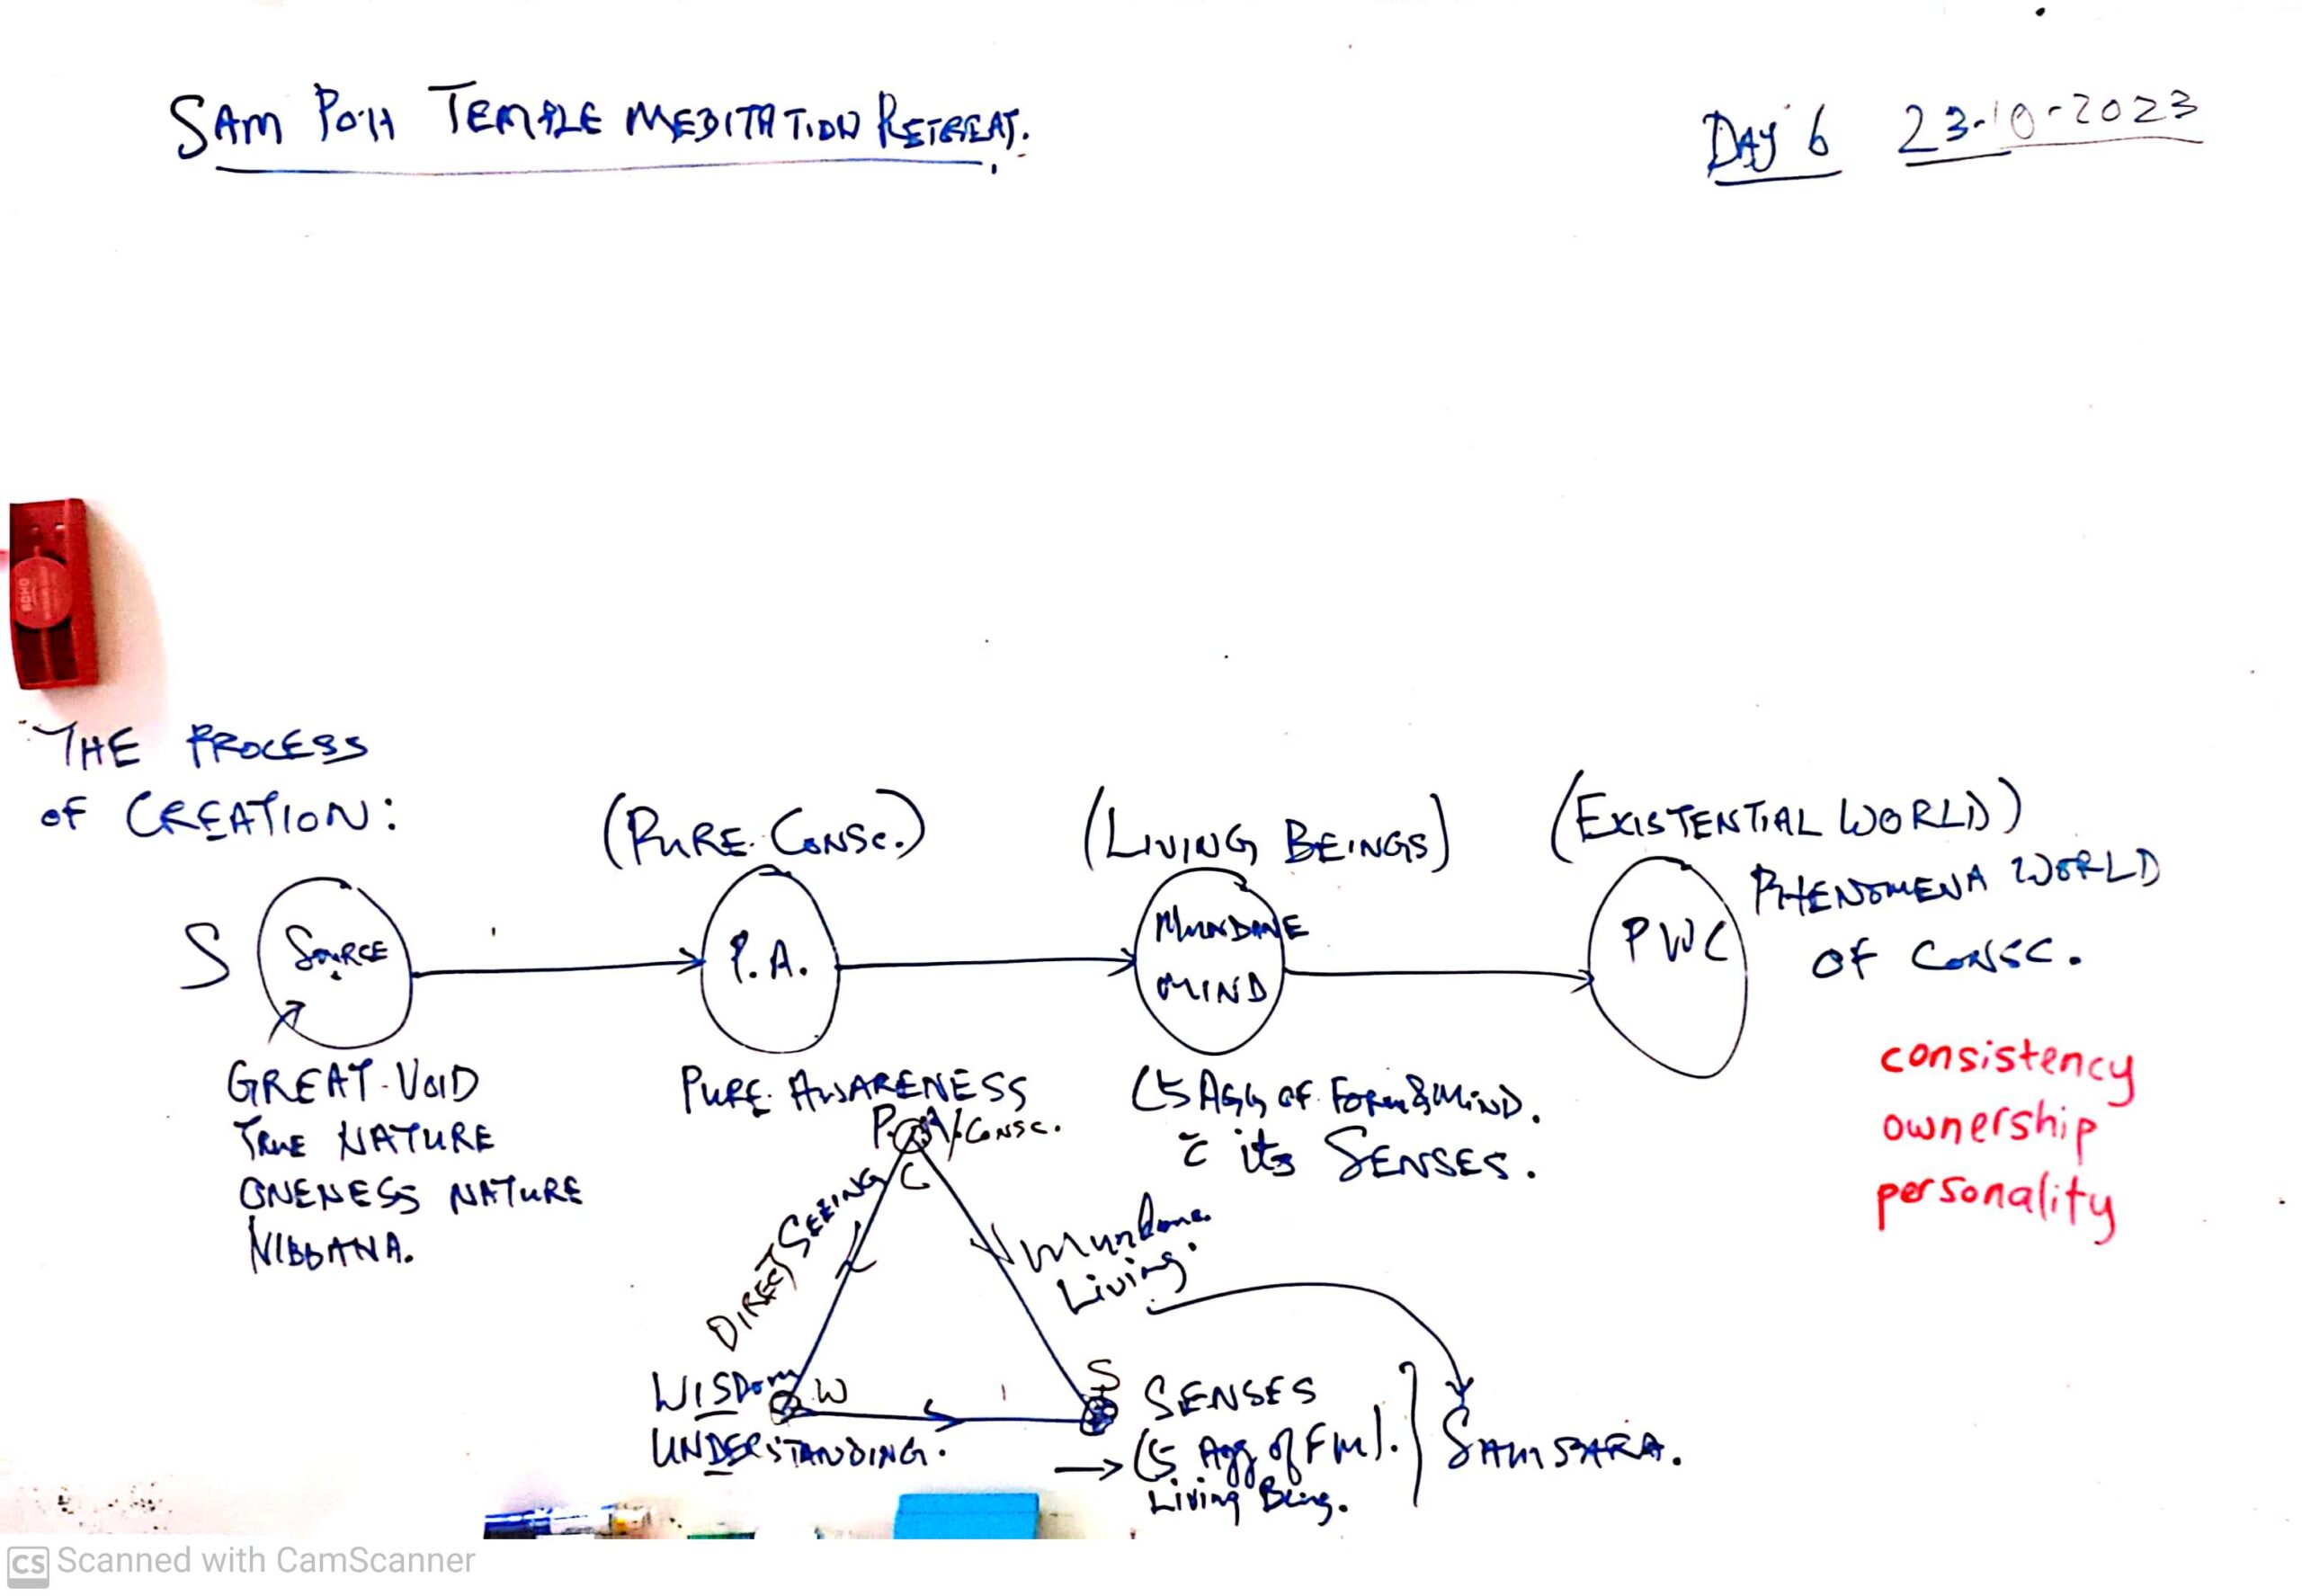 SAM POH TEMPLE MEDITATION RETREAT.
DAY 6 23-10-2023
THE PROCESS
OF CREATION:
(PURE CONSC.)
(LIVING BEINGS)
(EXISTENTIAL WORLD)
PHENOMENA WORLD
OF CONSC.
S
SOURCE
P.A.
MUNDANE
MIND
PWC
GREAT VOID
TRUE NATURE
ONENESS NATURE
NIBBANA.
PURE AWARENESS
P.A/CONSC.
C
(5 AGG OF FORM & MIND.
c̄ its SENSES.
consistency
ownership
personality
DIRECT SEEING
Mundane
Living.
WISDOM W
UNDERSTANDING.
S
SENSES
→ (5 Agg of FM).
Living Being.
SAMSARA.
CS Scanned with CamScanner